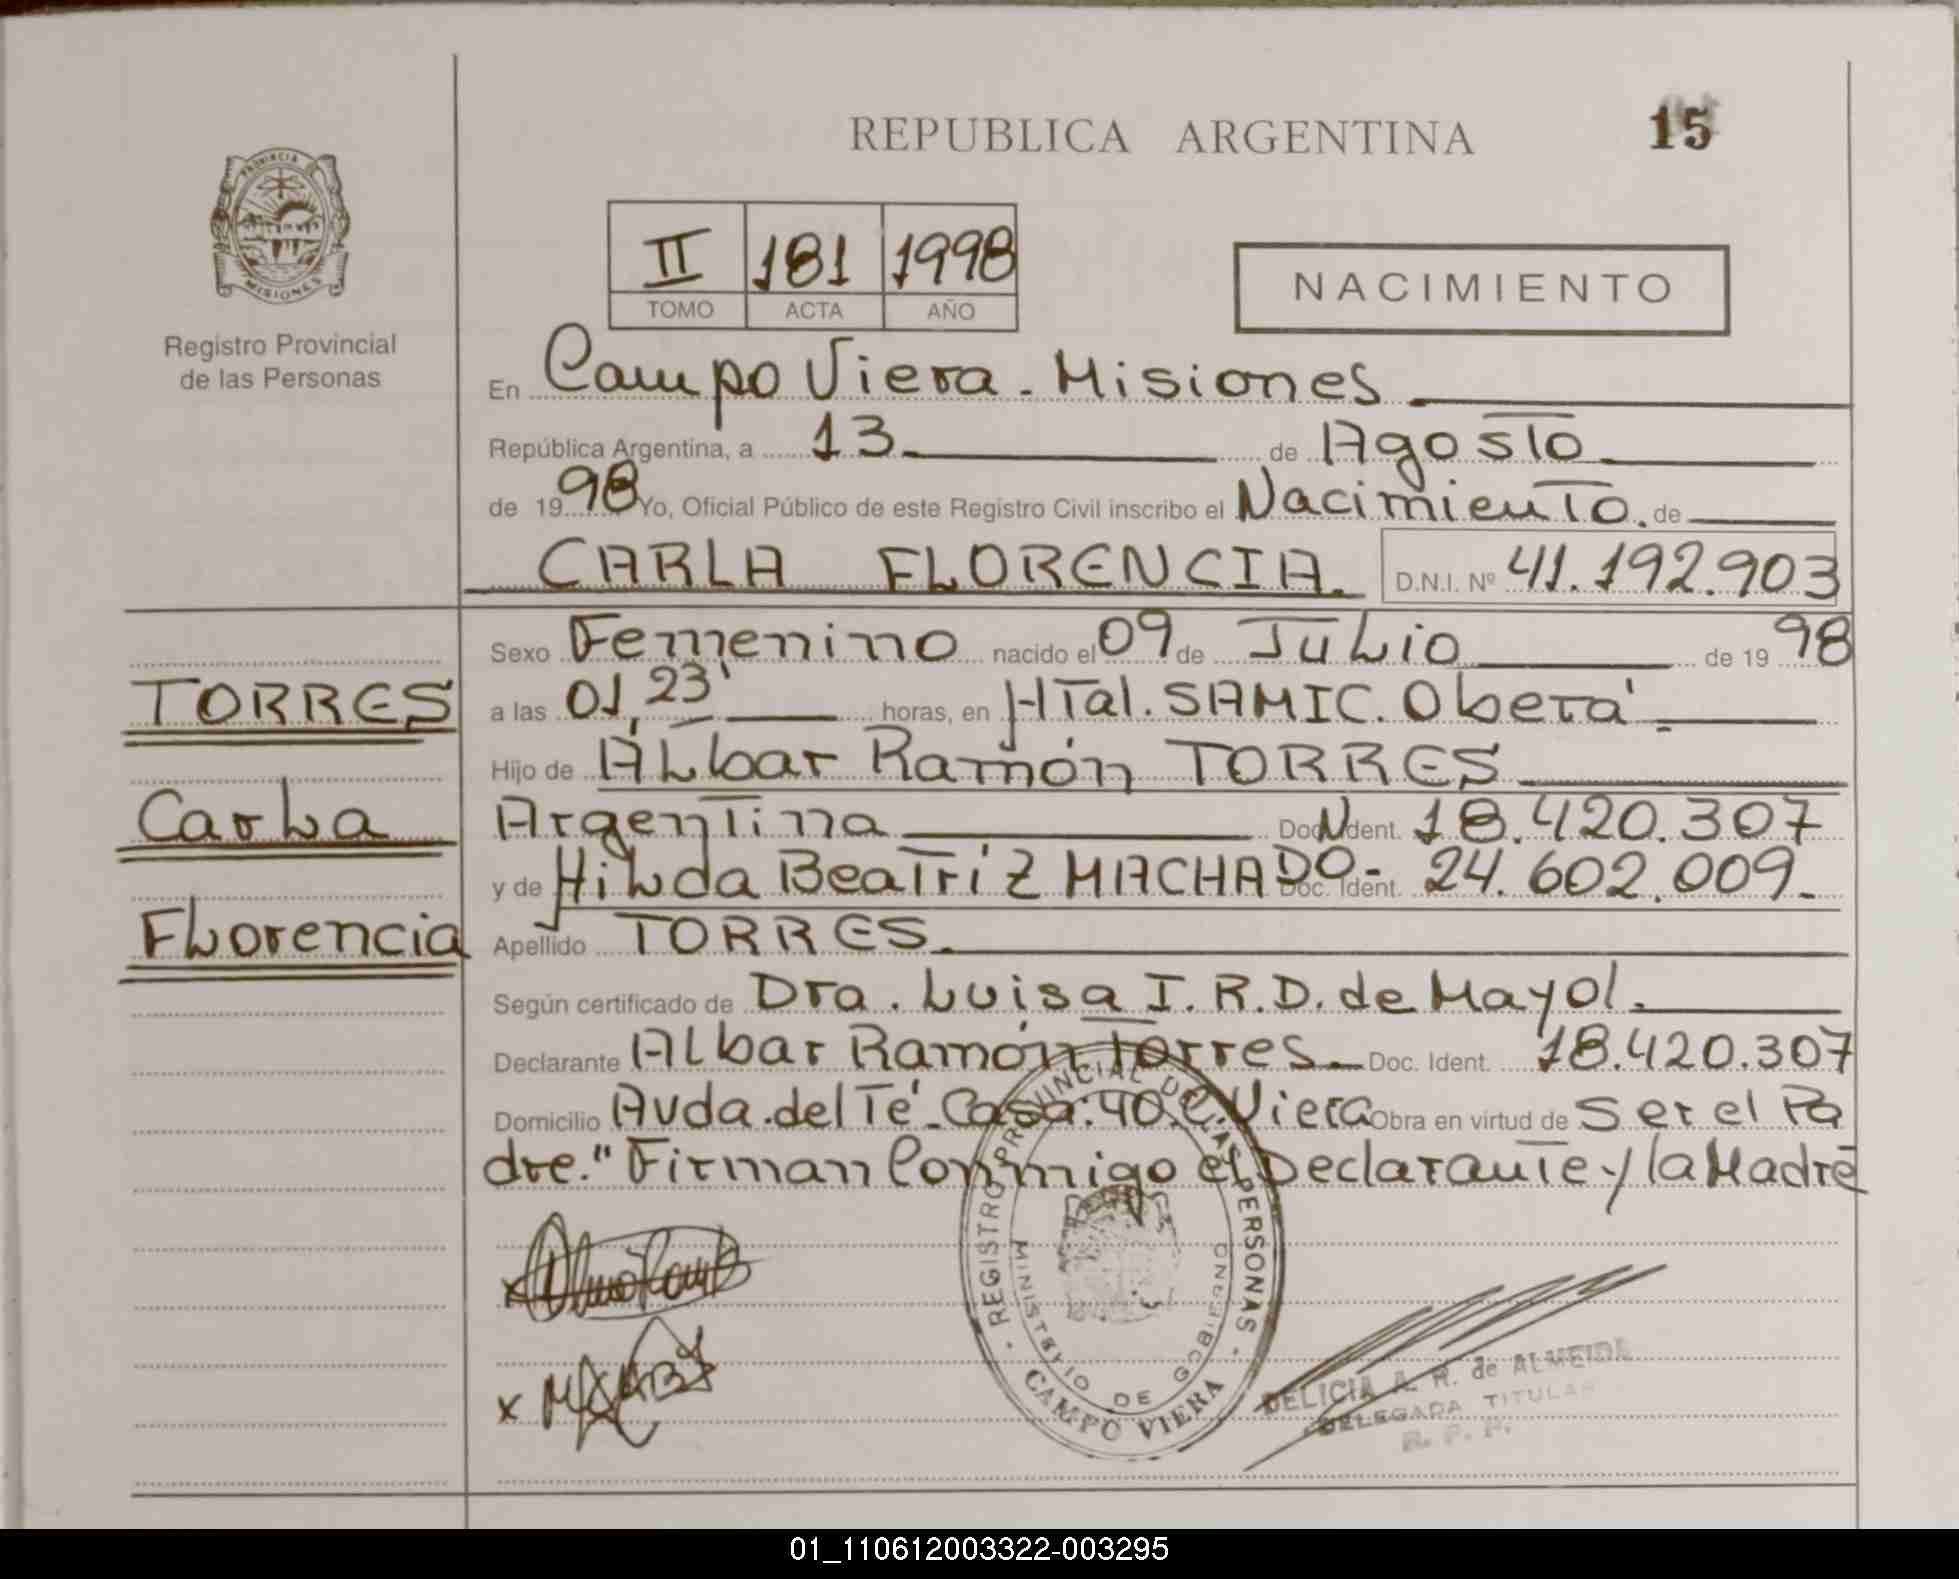 REPUBLICA ARGENTINA
15
PROVINCIA
MISIONES
Registro Provincial
de las Personas
II 181 1998
TOMO ACTA AÑO
NACIMIENTO
En Campo Viera - Misiones
República Argentina, a 13 de Agosto
de 1998 Yo, Oficial Público de este Registro Civil inscribo el Nacimiento. de
CARLA FLORENCIA. D.N.I. Nº 41.192.903
TORRES
Carla
Florencia
Sexo Femenino nacido el 09 de Julio de 1998
a las 01,23' horas, en Htal. SAMIC. Oberá
Hijo de Albar Ramón TORRES
Argentina Doc. Ident. N 18.420.307
y de Hilda Beatríz MACHADO- Doc. Ident. 24.602.009-
Apellido TORRES.
Según certificado de Dra. Luisa I.R.D. de Mayol.
Declarante Albar Ramón Torres Doc. Ident. 18.420.307
Domicilio Avda. del Té - Casa: 40. C. Viera Obra en virtud de Ser el Pa
dre." Firman Conmigo el Declarante y la Madre
REGISTRO PROVINCIAL DE LAS PERSONAS
MINISTERIO DE GOBIERNO
CAMPO VIERA
DELICIA A. R. de ALMEIDA
DELEGADA TITULAR
R. P. P.
01_110612003322-003295